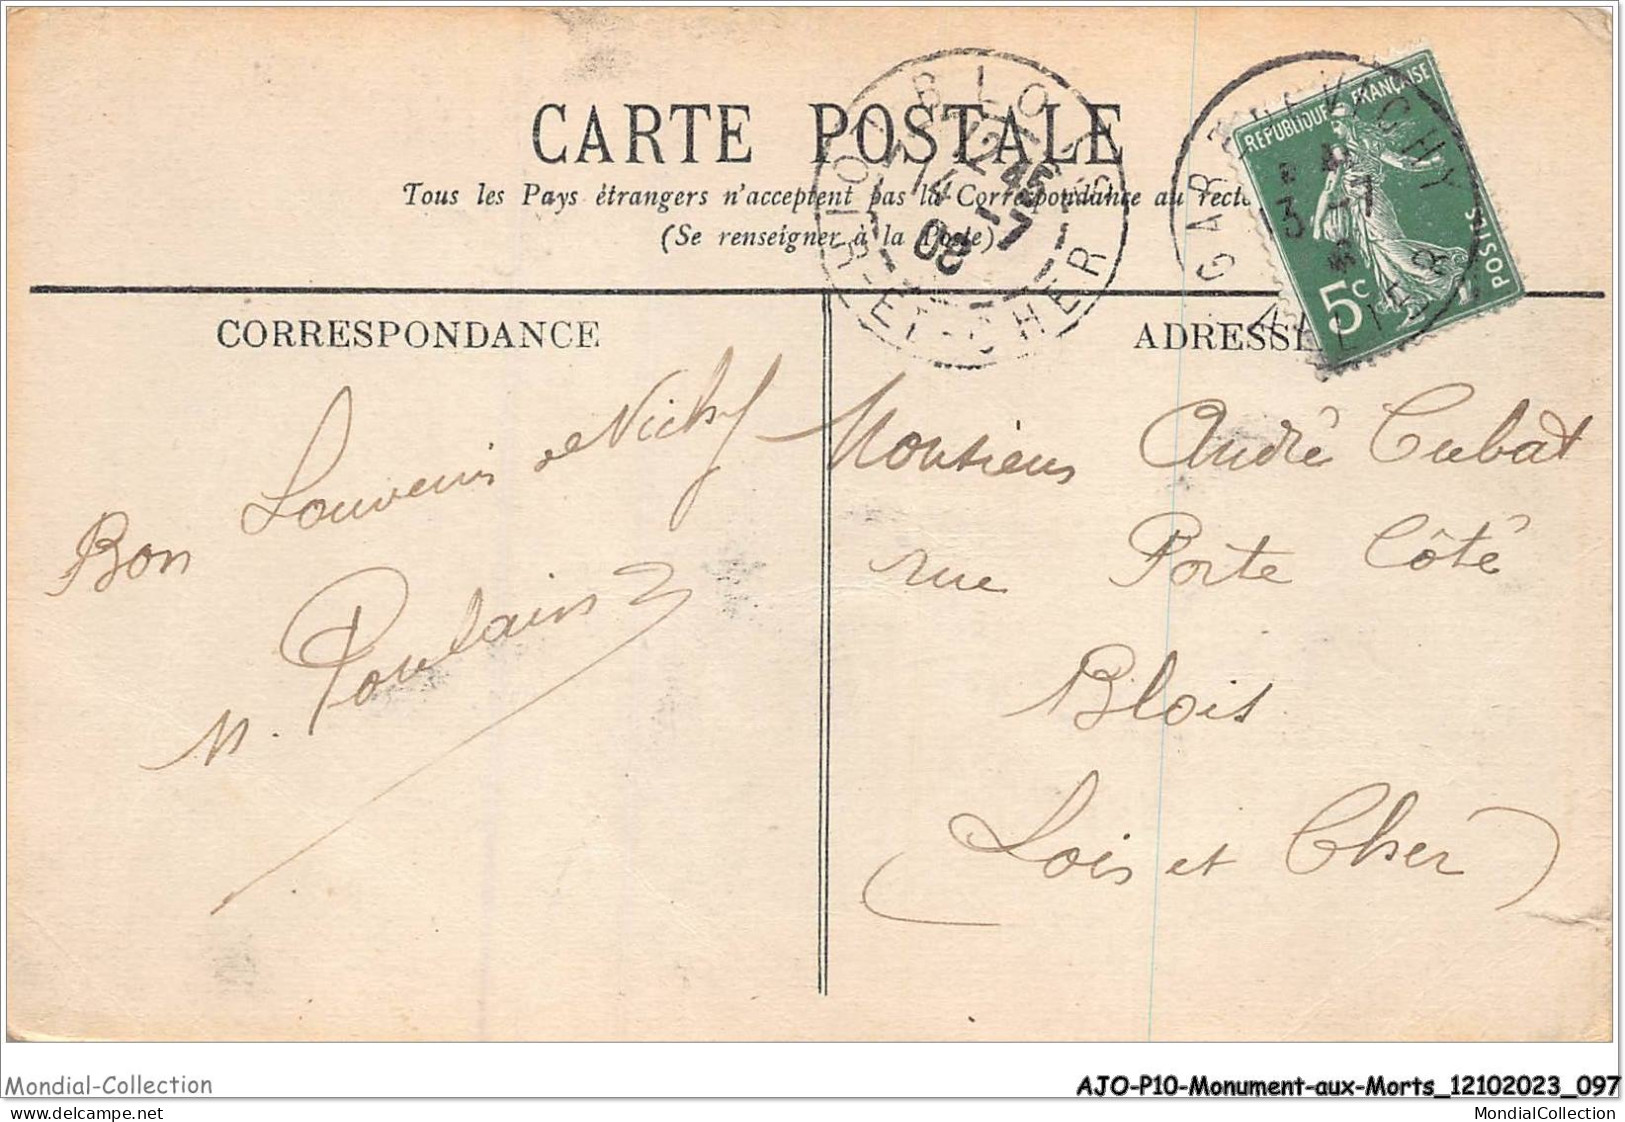 CARTE POSTALE
Tous les Pays étrangers n'acceptent pas la Correspondance au recto
(Se renseigner à la Poste)
BLOIS
LOIR-ET-CHER
12 45
14 -7
08
GARE DE VICHY
ALLIER
13 -7
REPUBLIQUE FRANÇAISE
5c
POSTES
CORRESPONDANCE
ADRESSE
Bon Souvenir de Vichy
M. Poulain
Monsieur André Cubat
rue Porte Côté
Blois
(Loir et Cher)
Mondial-Collection
AJO-P10-Monument-aux-Morts_12102023_097
MondialCollection